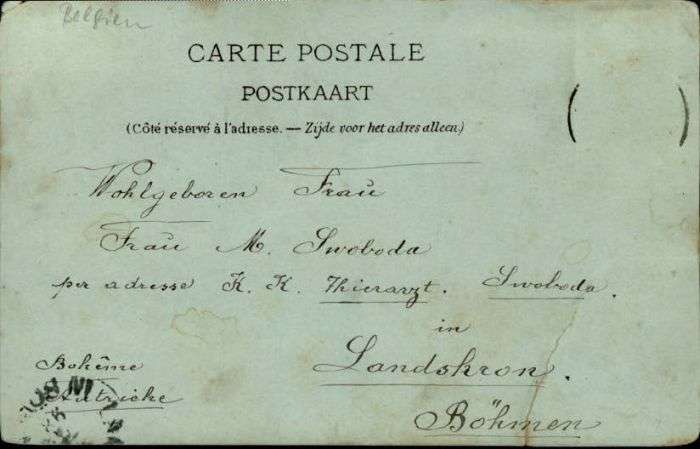 Belgien
CARTE POSTALE
POSTKAART
(Côté réservé à l'adresse. — Zijde voor het adres alleen.)
Wohlgeboren Frau
Frau M. Swoboda
per adresse K. K. Thierarzt. Swoboda.
in
Landskron.
Böhmen
Bohême
Autriche